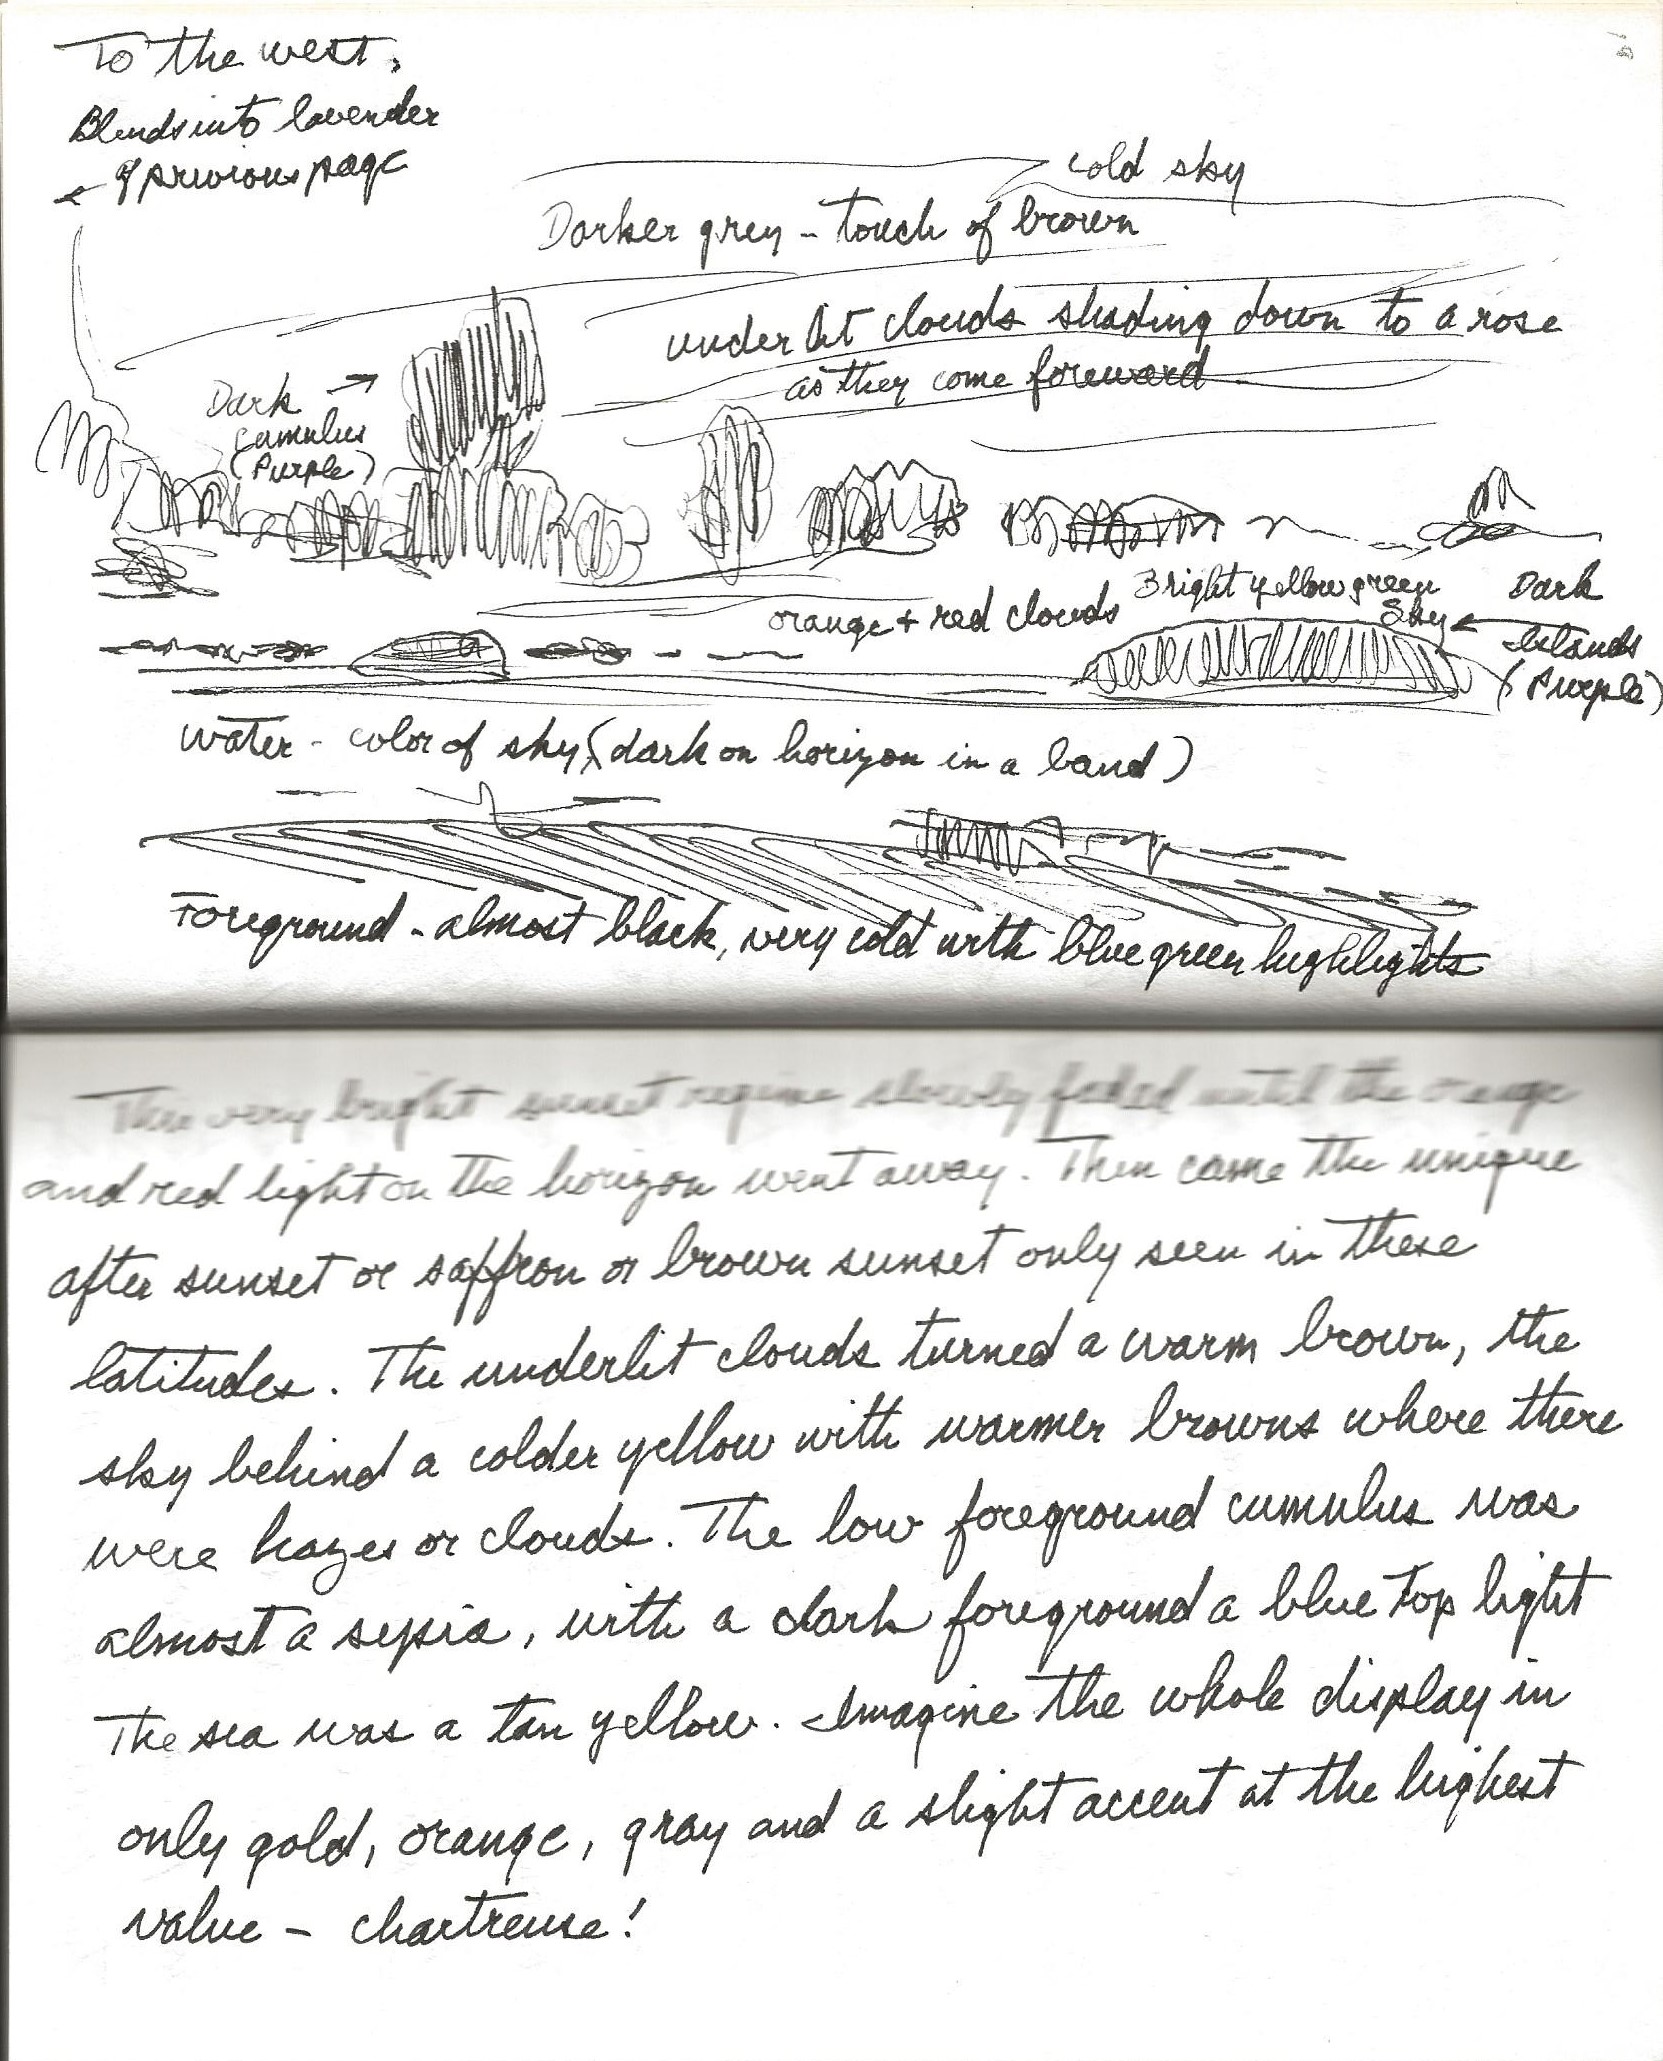 To the west.
Blends into lavender
of previous page
cold sky
Darker grey - touch of brown
underlit clouds shading down to a rose
as they come foreward.
Dark
cumulus
(Purple)
orange + red clouds
Bright yellow green
Sky
Dark
Islands
(Purple)
water - color of sky (dark on horizon in a band)
Foreground - almost black, very cold with blue green highlights
This very bright sunset regime slowly faded until the orange
and red light on the horizon went away. Then came the unique
after sunset or saffron or brown sunset only seen in these
latitudes. The underlit clouds turned a warm brown, the
sky behind a colder yellow with warmer browns where there
were hazes or clouds. The low foreground cumulus was
almost a sepia, with a dark foreground a blue top light
The sea was a tan yellow. Imagine the whole display in
only gold, orange, gray and a slight accent at the highest
value - chartreuse!